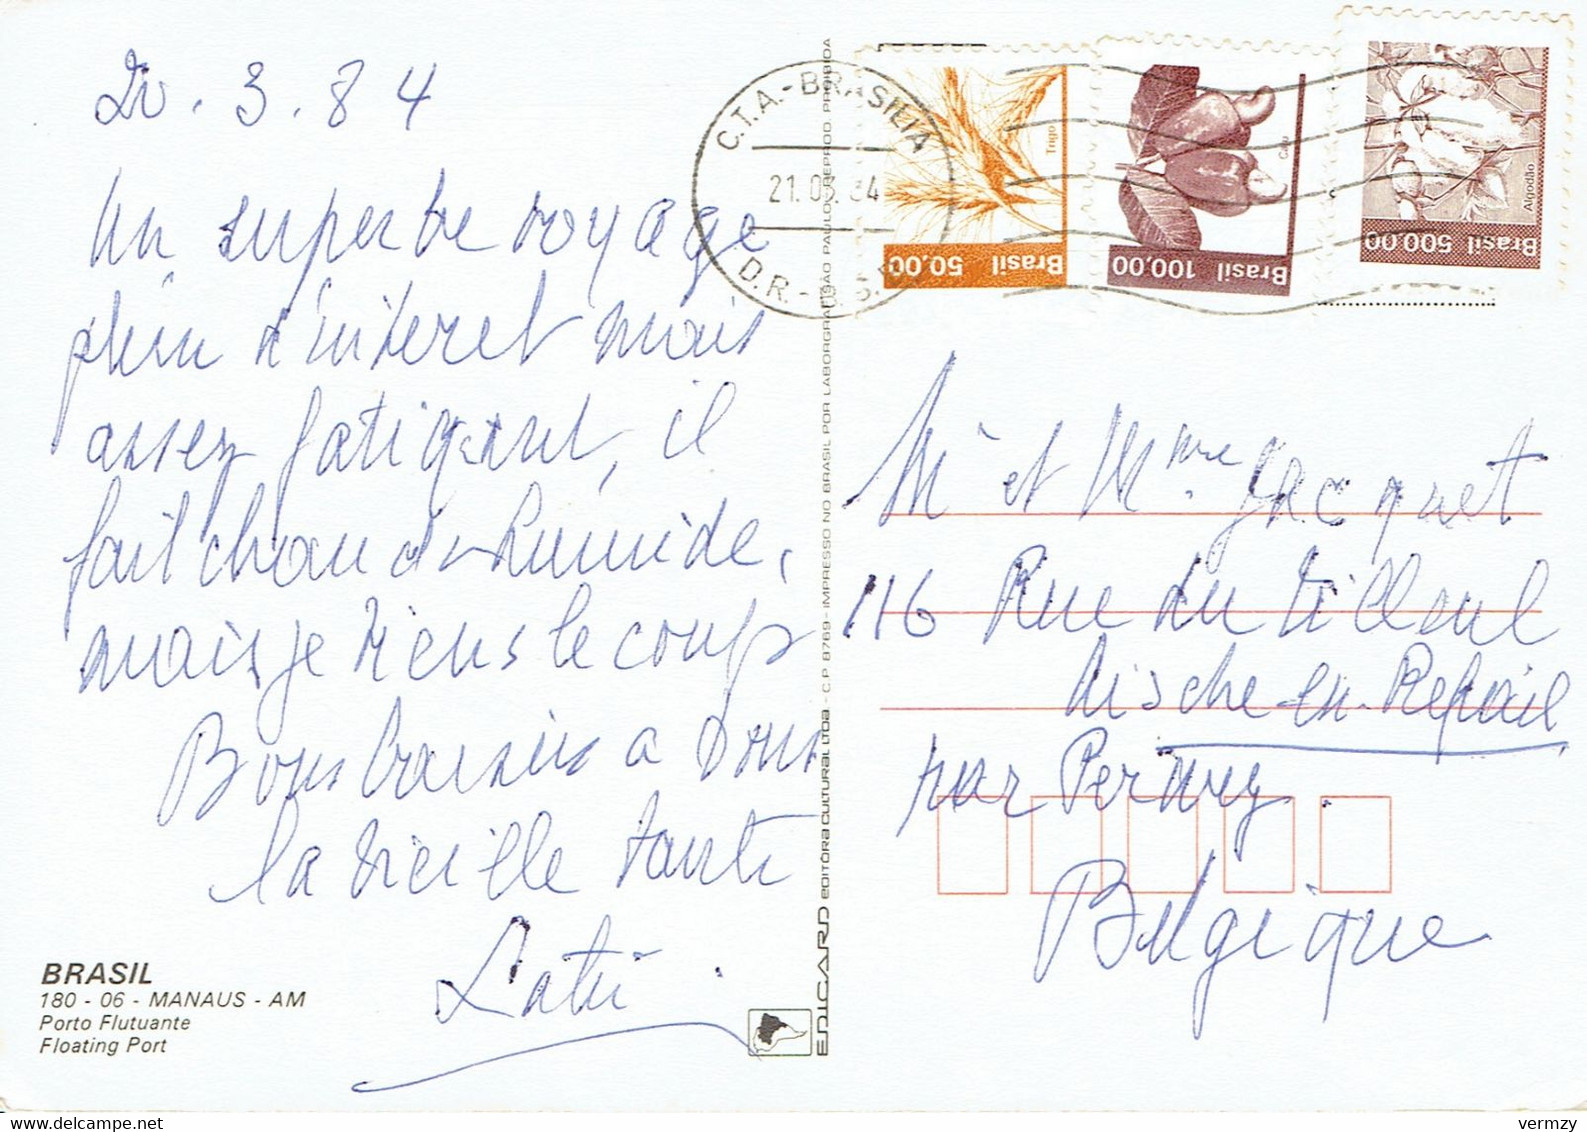 20.3.84
Un superbe voyage
plein d'interet mais
assez fatigant, il
fait chaud humide,
mais je tiens le coup
Bons baisers a vous
la vieille tante
BRASIL
180 - 06 - MANAUS - AM
Porto Flutuante
Floating Port
EDICARD EDITÔRA CULTURAL LTDA - C.P. 8769 - IMPRESSO NO BRASIL POR LABORGRAF SÃO PAULO REPROD. PROIBIDA
C.T.A. - BRASILIA
21.03.84
D.R. -
Trigo
Brasil 50,00
Caju
Brasil 100,00
Algodão
Brasil 500,00
Mr et Mme Jacquet
116 Rue du Tilleul
en-Refail
par Perwez
Belgique
vermzy